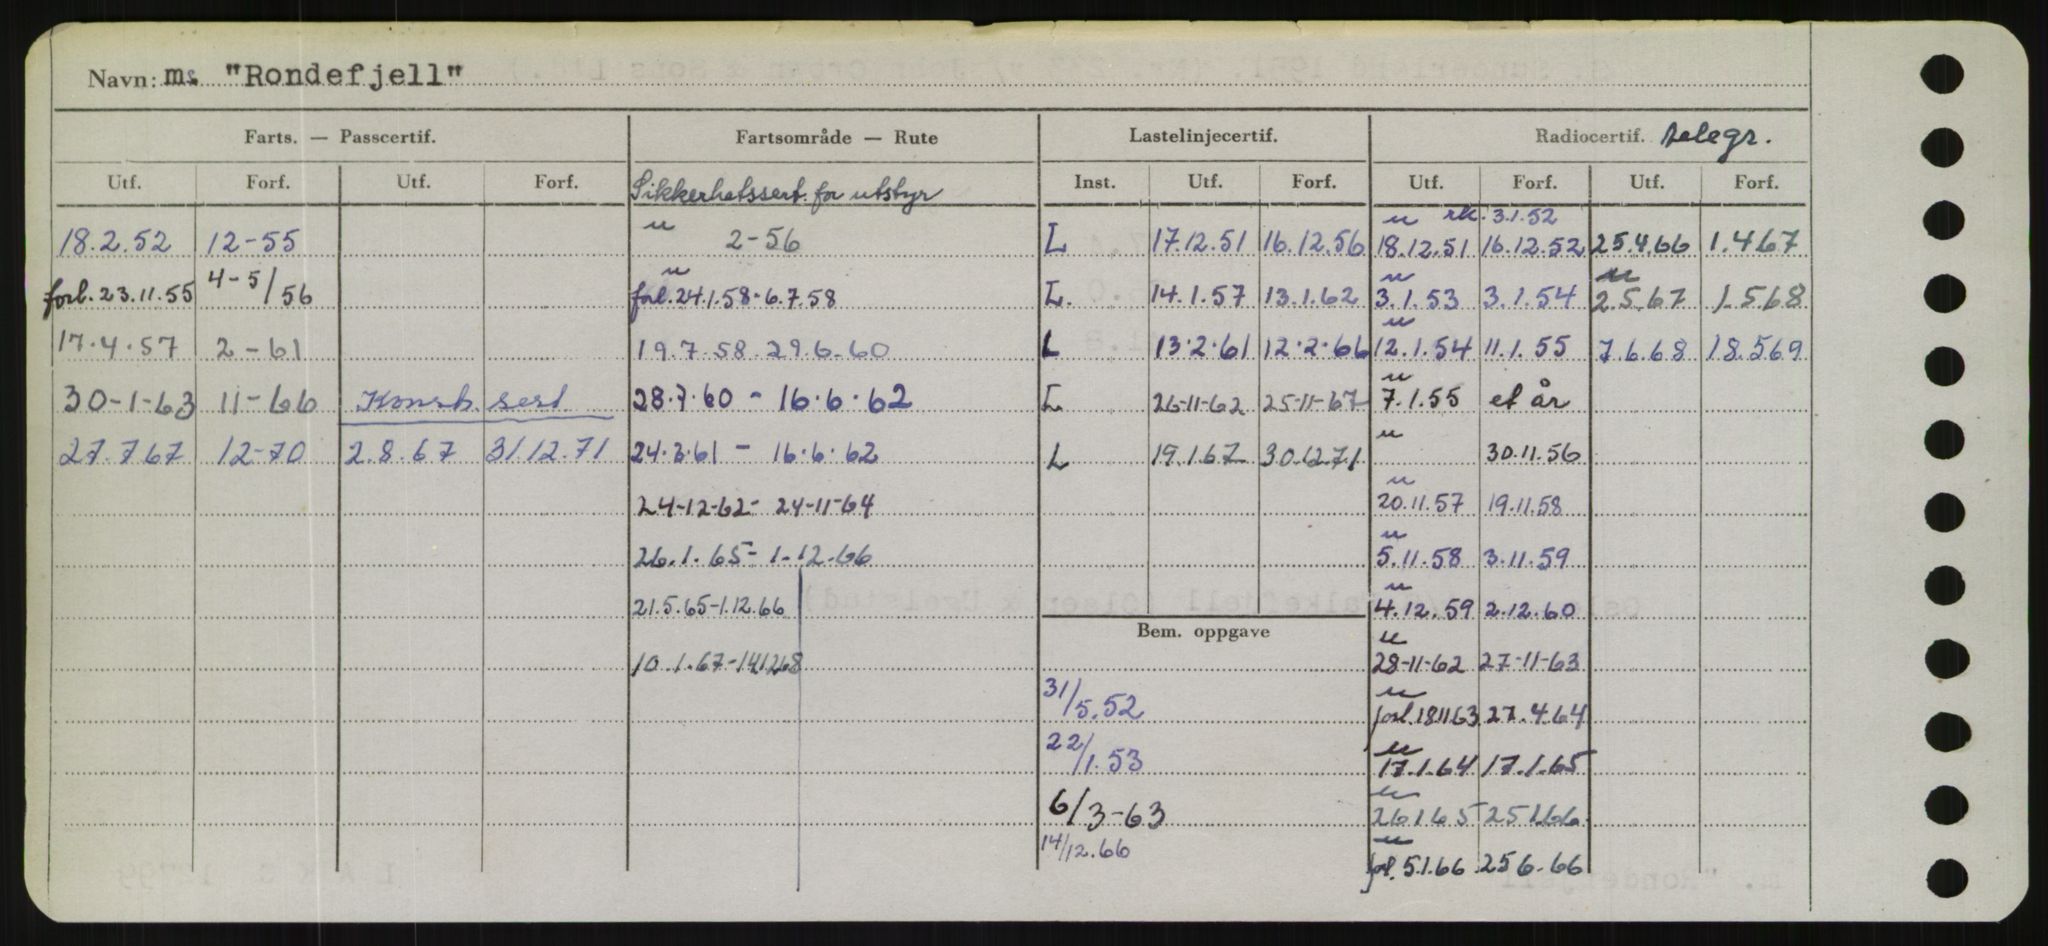 Navn: ms. "Rondefjell"
Farts. — Passcertif. Fartsområde — Rute Lastelinjecertif. Radiocertif. telegr.
Utf. Forf. Utf. Forf. Sikkerhetssert. for utstyr Inst. Utf. Forf. Utf. Forf. Utf. Forf.
u rk. 3.1.52
18.2.52 12-55 u 2-56 L 17.12.51 16.12.56 18.12.51 16.12.52 25.4.66 1.4.67
forl. 23.11.55 4-5/56 u forl. 24.1.58-6.7.58 L. 14.1.57 13.1.62 u 3.1.53 3.1.54 u 2.5.67 1.5.68
17.4.57 2-61 19.7.58 29.6.60 L 13.2.61 12.2.66 u 12.1.54 11.1.55 7.6.68 18.569
30-1-63 11-66 Konstr. sert 28.7.60 - 16.6.62 L 26-11-62 25-11-67 u 7.1.55 et år
27.7.67 12-70 2.8.67 31.12.71 24.3.61 - 16.6.62 L 19.1.67 30.12.71 u 30.11.56
24-12-62- 24-11-64 u 20.11.57 19.11.58
26.1.65- 1.12.66 u 5.11.58 3.11.59
21.5.65-1.12.66 u 4.12.59 2.12.60
Bem. oppgave
10.1.67-141268 u 28-11-62 27-11-63
31/5.52 u forl 181163 27.4.64
22/1.53 u 17.1.64 17.1.65
6/3-63 u 26165 25166
14/12.66 u forl. 5.1.66 256.66